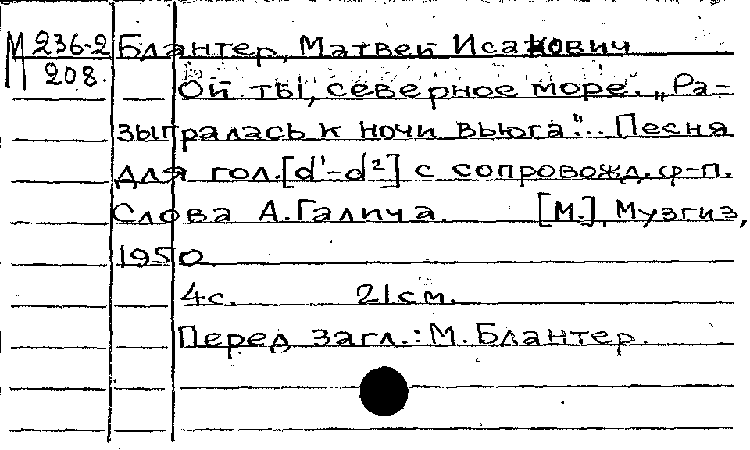 М 236-2
208
Блантер, Матвей Исакович
Ой ты, северное море. „Ра-
зыгралась к ночи вьюга"... Песня
для гол.[d¹-d²] с сопровожд. ф-п.
Слова А.Галича. [М.], Музгиз,
1950
4с. 21см.
Перед загл.: М.Блантер.